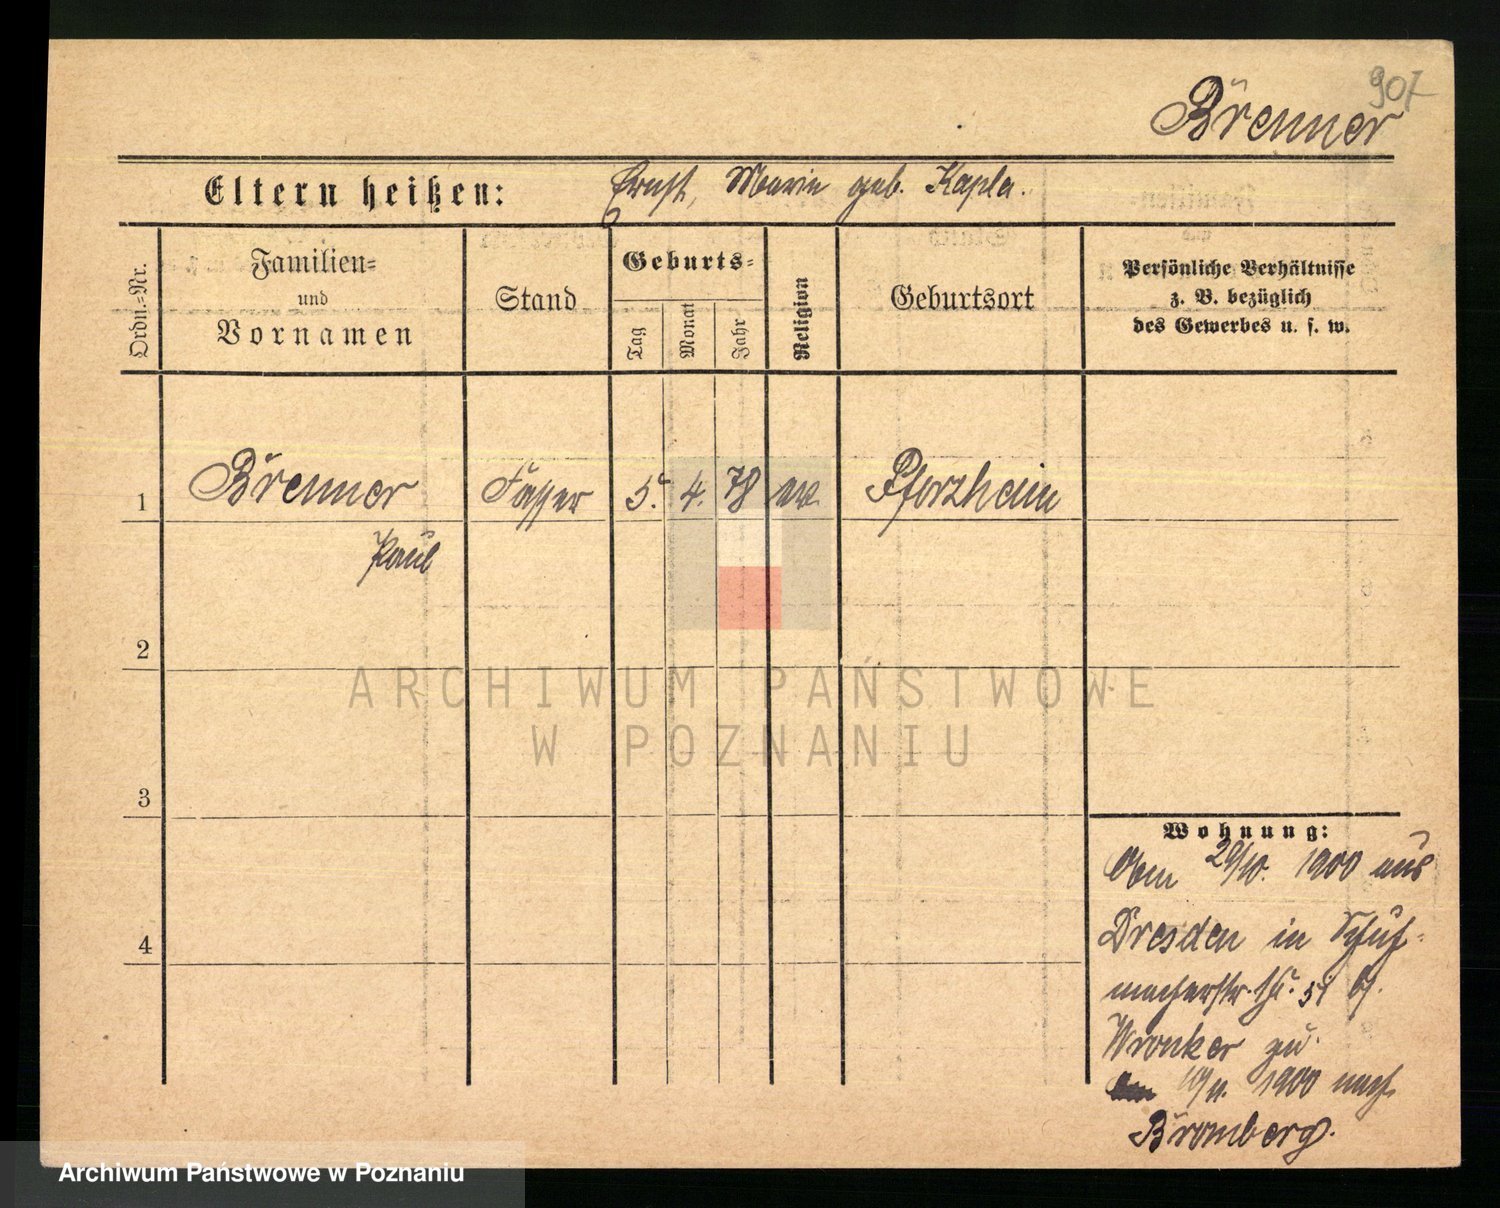 907
Brenner
Eltern heißen: Ernst, Marie geb. Kapla.
Ordn.=Nr.
Familien=
und
Vornamen
Stand
Geburts=
Tag
Monat
Jahr
Religion
Geburtsort
Persönliche Verhältnisse
z. B. bezüglich
des Gewerbes u. s. w.
1 Brenner 5. 4. 78 ev. Pforzheim
Paul
2
3
4
Wohnung:
29/10. 1900 aus
Dresden in Schuh=
macherstr. 5
Wronker zu.
10/11. 1900 nach
Bromberg.
ARCHIWUM PAŃSTWOWE
W POZNANIU
Archiwum Państwowe w Poznaniu